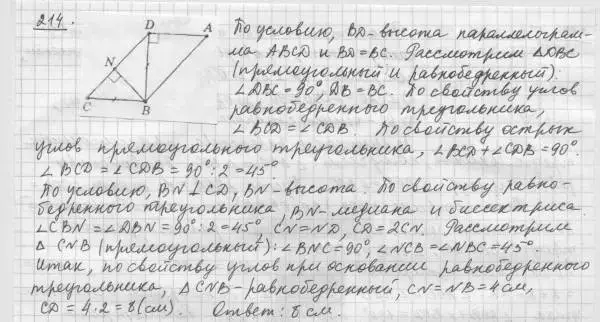 214.
D A
N
C B
По условию, BD-высота параллелограм-
ма ABCD и BD=BC. Рассмотрим ΔDBC
(прямоугольный и равнобедренный):
∠DBC=90°, DB=BC. По свойству углов
равнобедренного треугольника,
∠BCD=∠CDB. По свойству острых
углов прямоугольного треугольника, ∠BCD+∠CDB=90°.
∠BCD=∠CDB=90°:2=45°.
По условию, BN⊥CD, BN-высота. По свойству равно-
бедренного треугольника, BN-медиана и биссектриса.
∠CBN=∠DBN=90°:2=45°, CN=ND, CD=2CN. Рассмотрим
Δ CNB (прямоугольный): ∠BNC=90°, ∠NCB=∠NBC=45°.
Итак, по свойству углов при основании равнобедренного
треугольника, ΔCNB-равнобедренный, CN=NB=4см,
CD=4·2=8(см). Ответ: 8 см.